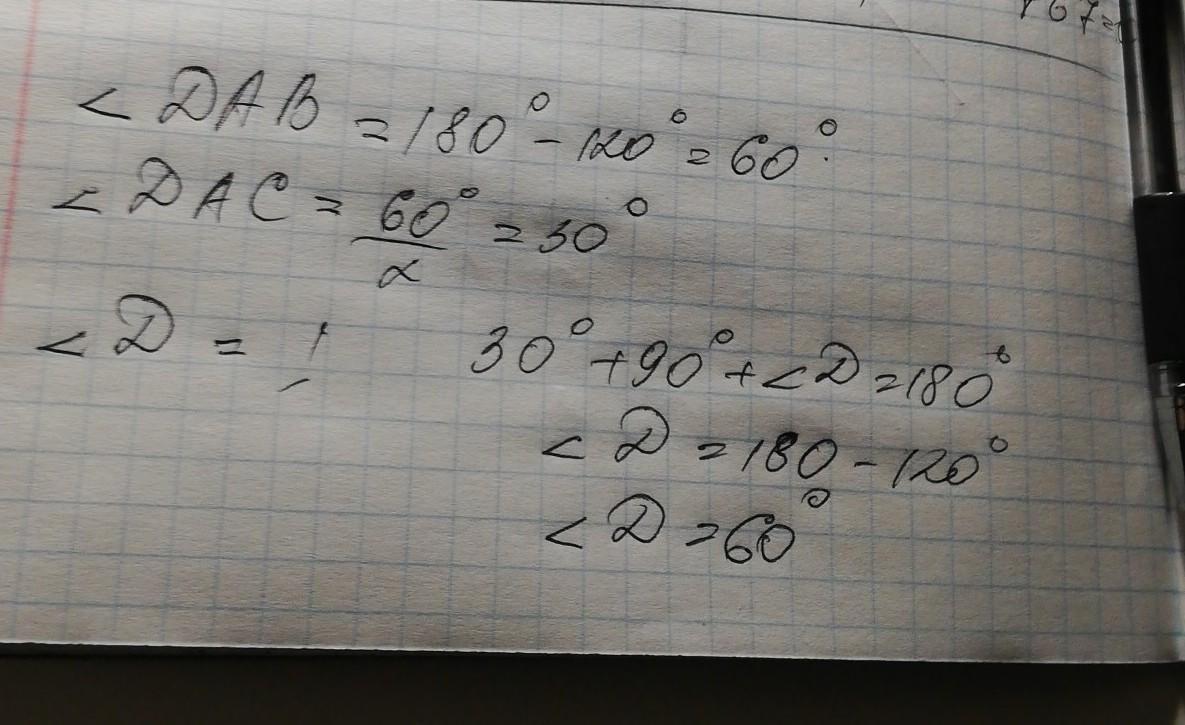 < DAB = 180° - 120° = 60°.
< DAC = 60°/2 = 30°
< D =
30° + 90° + < D = 180°
< D = 180 - 120°
< D = 60°